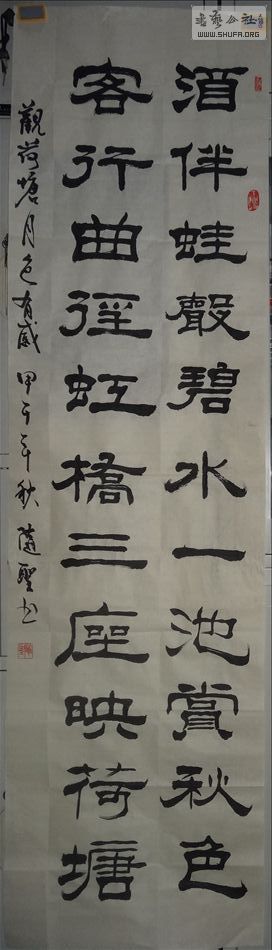 酒伴蛙聲碧水一池賞秋色
客行曲徑虹橋三座映荷塘
觀荷塘月色有感 甲午年秋 隨聖书
书艺公社
www.SHUFA.ORG